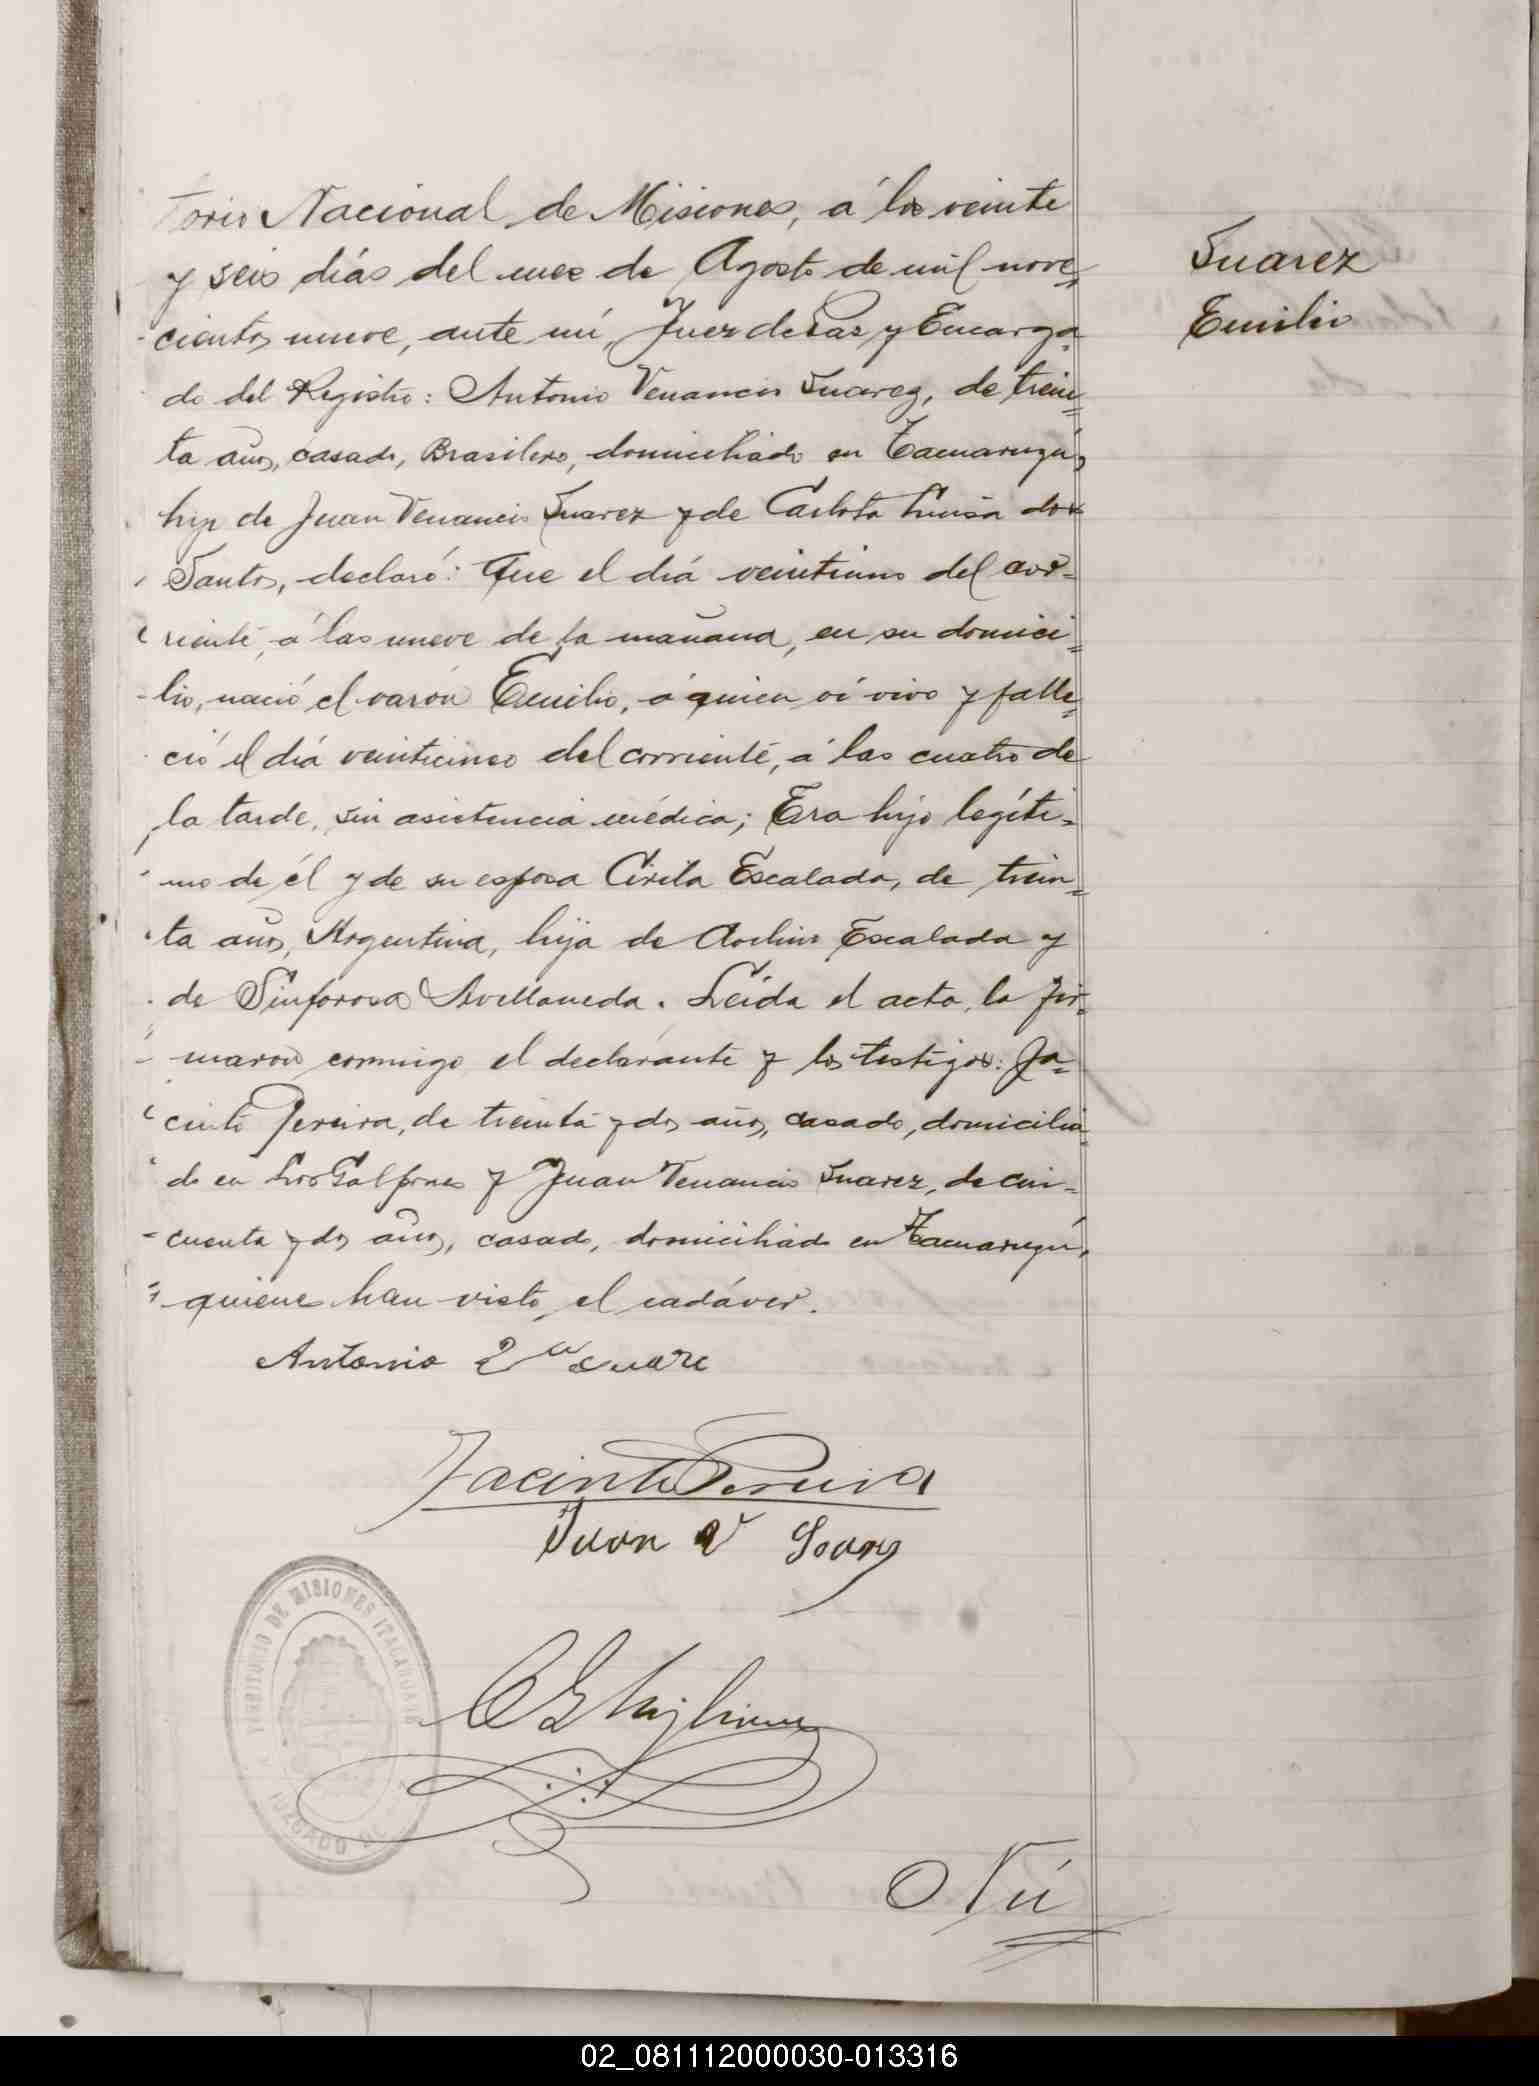 torio Nacional de Misiones, á los veinte
y seis días del mes de Agosto de mil nove=
cientos nueve, ante mí, Juez de Paz y Encarga=
do del Registro: Antonio Venancio Suarez, de trein=
ta años, casado, Brasilero, domiciliado en Tacuaruzú,
hijo de Juan Venancio Suarez y de Carlota Luisa dos
Santos, declaró: Que el día veintiuno del cor=
riente, á las nueve de la mañana, en su domici=
lio, nació el varón Emilio, á quien ví vivo y falle=
ció el día veinticinco del corriente, á las cuatro de
la tarde, sin asistencia médica; Era hijo legíti=
mo de él y de su esposa Cirila Escalada, de trein=
ta años, Argentina, hija de Escalada y
de Sinforosa Avellaneda. Leída el acta, la fir=
maron conmigo el declarante y los testigos: Ja=
cinto Pereira, de treinta y dos años, casado, domicilia=
do en Los Galpones y Juan Venancio Suarez, de cin=
cuenta y dos años, casado, domiciliado en Tacuaruzú,
quienes han visto el cadáver.
Antonio
Jacinto Pereira
Juan V
TERRITORIO DE MISIONES
JUZGADO DE
Suarez
Emilio
02_081112000030-013316